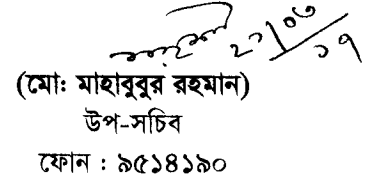 ২১/০৩/১৭
(মো: মাহাবুবুর রহমান)
উপ-সচিব
ফোন : ৯৫১৪১৯০